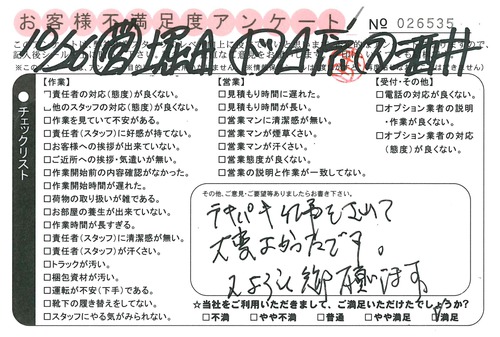 お客様不満足度アンケート
№ 026535
チェックリスト
【作業】
□責任者の対応(態度)が良くない。
□他のスタッフの対応(態度)が良くない。
□作業を見ていて不安がある。
□責任者(スタッフ)に好感が持てない。
□お客様への挨拶が出来ていない。
□ご近所への挨拶・気遣いが無い。
□作業開始前の内容確認がなかった。
□作業開始時間が遅れた。
□荷物の取り扱いが雑である。
□お部屋の養生が出来ていない。
□作業時間が長すぎる。
□責任者(スタッフ)に清潔感が無い。
□責任者(スタッフ)が汗くさい。
□トラックが汚い。
□梱包資材が汚い。
□運転が不安(下手)である。
□靴下の履き替えをしてない。
□スタッフにやる気がみられない。
【営業】
□見積もり時間に遅れた。
□見積もり時間が長い。
□営業マンに清潔感が無い。
□営業マンが煙草くさい。
□営業マンが汗くさい。
□営業態度が良くない。
□営業の説明と作業が一致してない。
【受付・その他】
□電話の対応が良くない。
□オプション業者の説明
・作業が良くない。
□オプション業者の対応
(態度)が良くない。
その他、ご意見・ご要望等ありましたらお書き下さい。
テキパキ
大変よかったです。
☆当社をご利用いただきまして、ご満足いただけたでしょうか?
□不満 □やや不満 □普通 □やや満足 満足